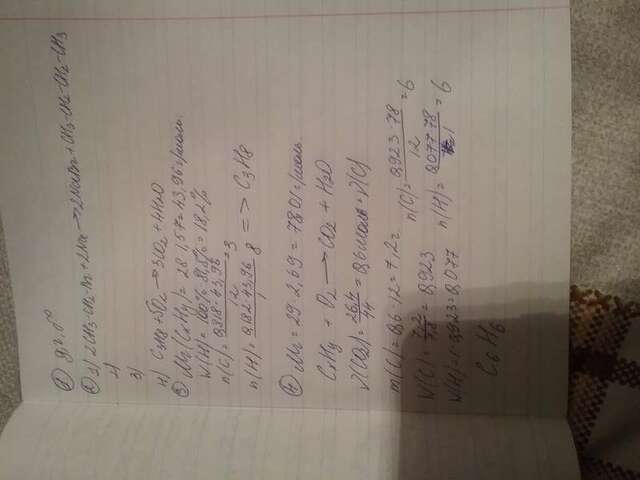 ② 1) 2CH3-CH2-Br + 2Na → 2NaBr + CH3-CH2-CH2-CH3
2)
3)
4) C3H8 + 5O2 → 3CO2 + 4H2O
③ Mr(CxHy) = 28·1,57 = 43,96 г/моль
W(H) = 100% - 81,8% = 18,2%
n(C) = 0,818·43,96 / 12 = 3
n(H) = 0,182·43,96 / 1 = 8 => C3H8
④ Mr = 29·2,69 = 78,01 г/моль
CxHy + O2 → CO2 + H2O
ν(CO2) = 26,4 / 44 = 0,6 моль = ν(C)
m(C) = 0,6·12 = 7,2 г
W(C) = 7,2 / 7,8 = 0,923 n(C) = 0,923·78 / 12 = 6
W(H) = 1-0,923 = 0,077 n(H) = 0,077·78 / 1 = 6
C6H6